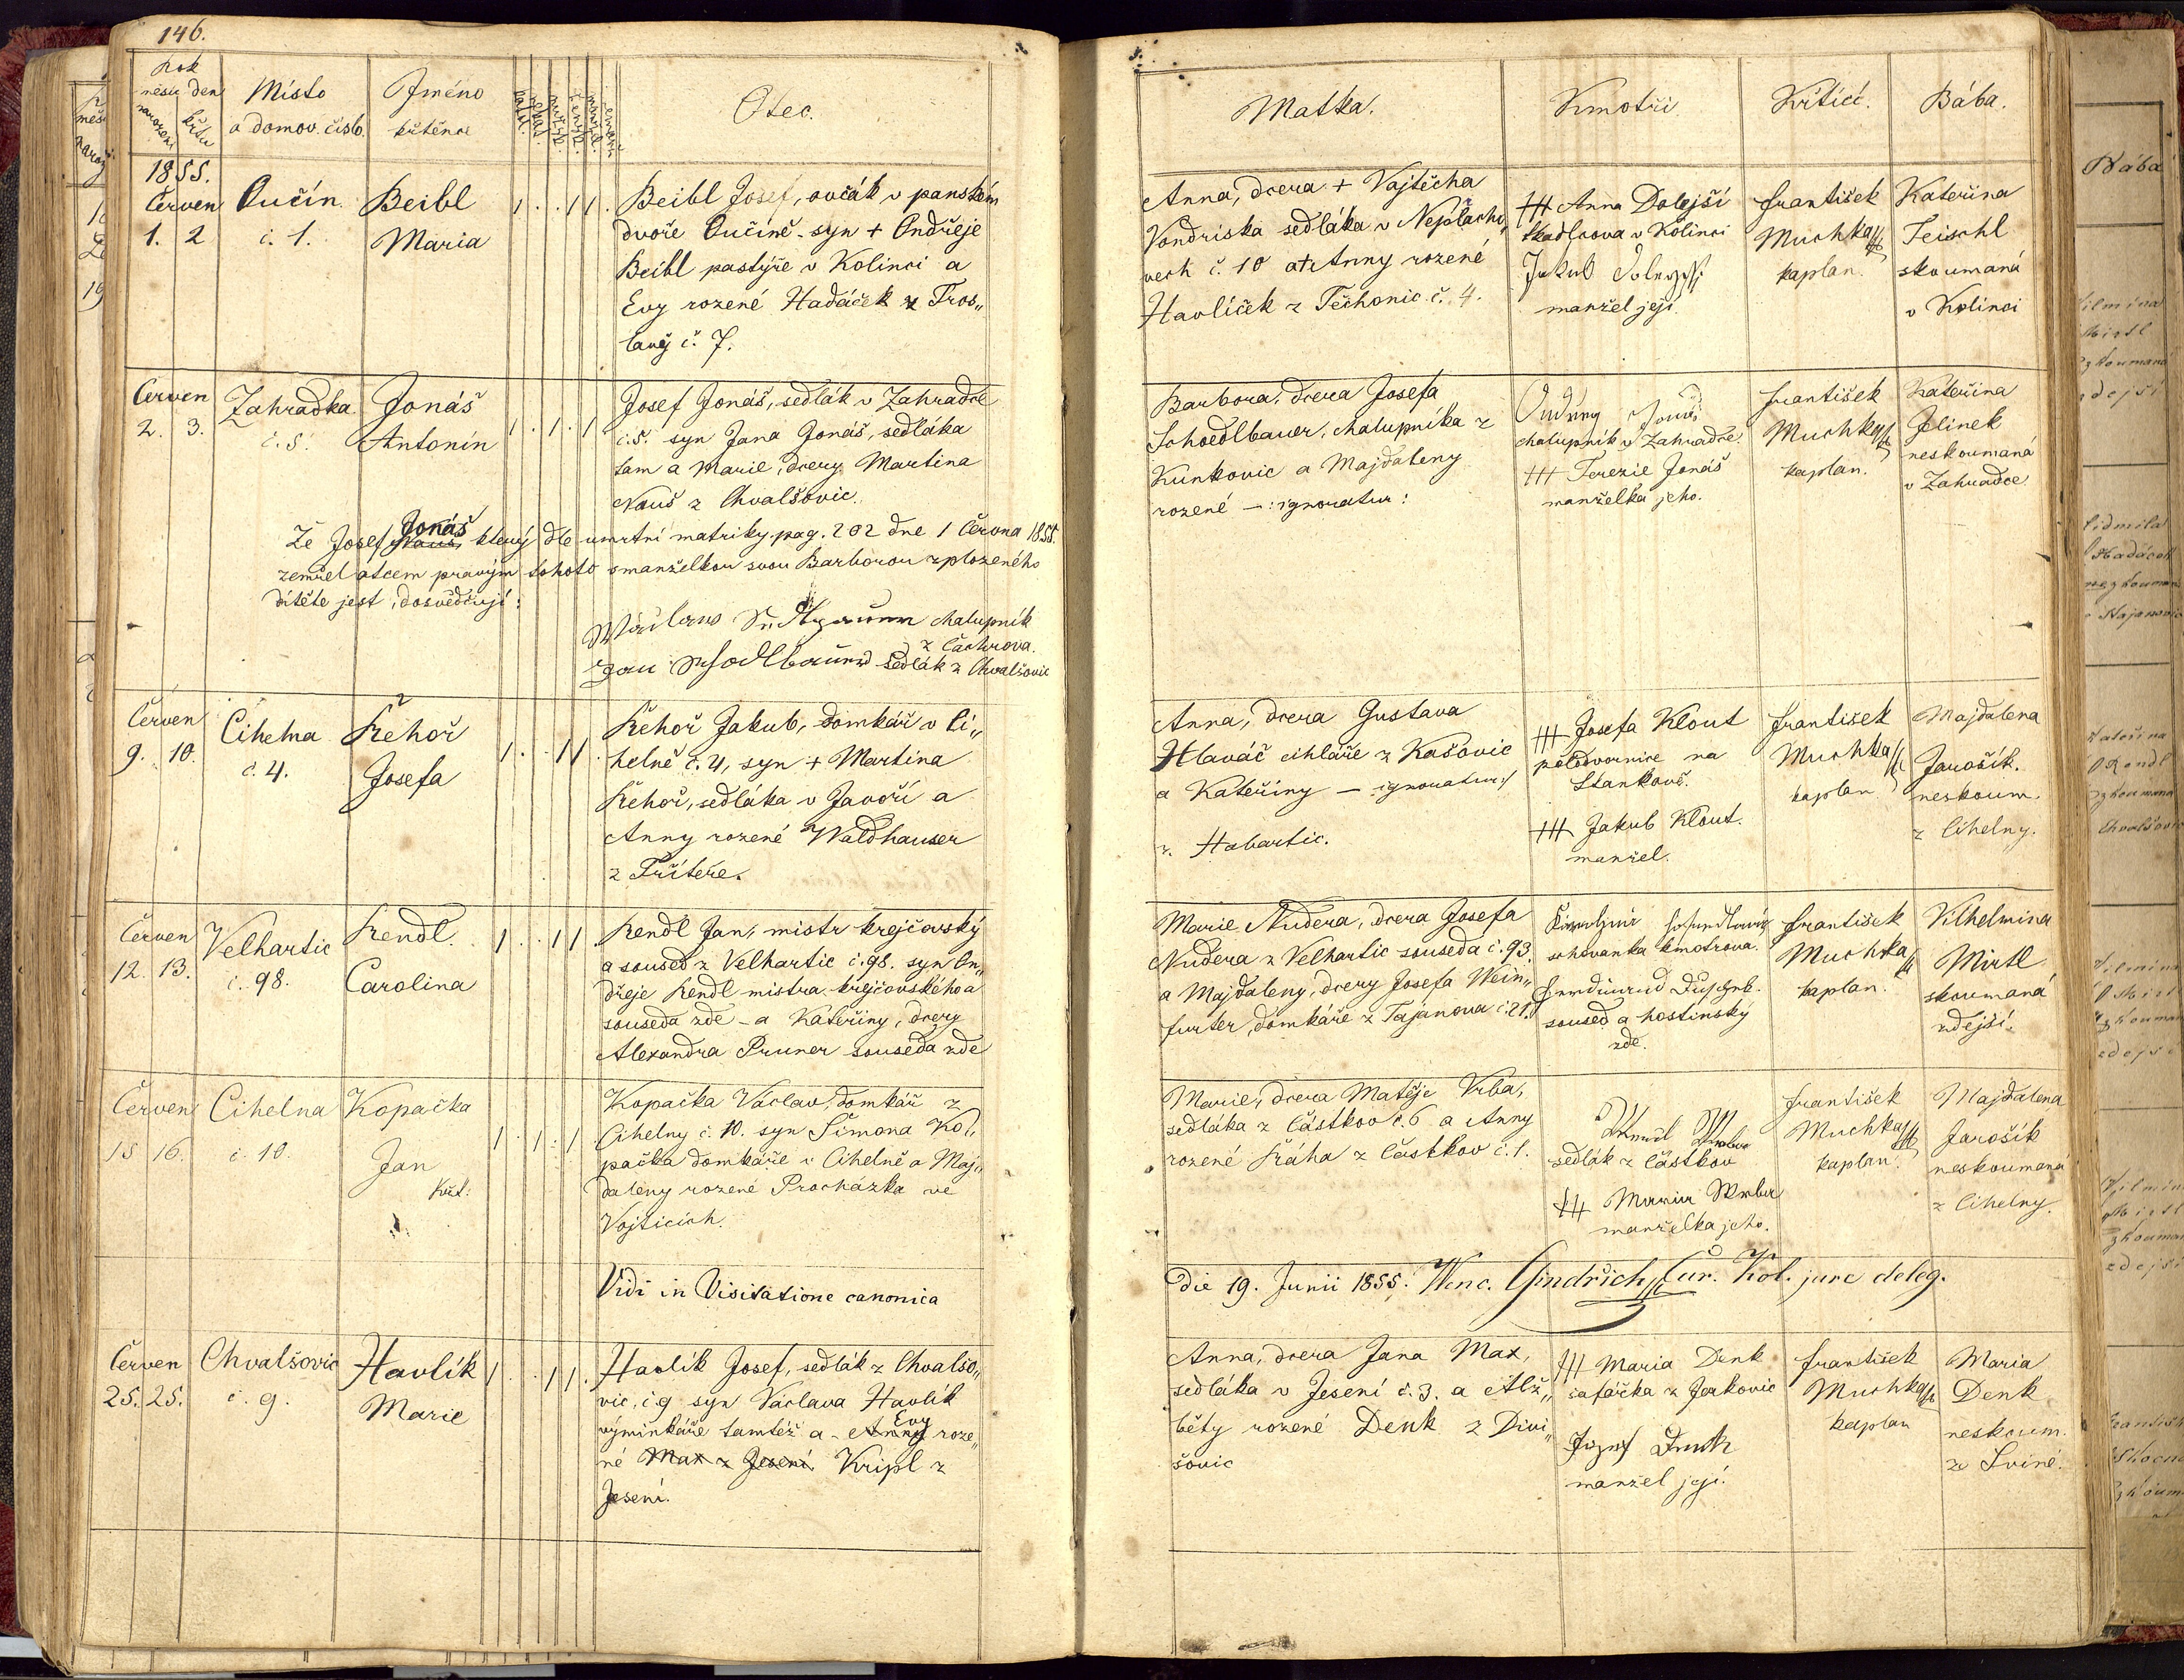 146.
Rok
měsíc den
narození
křtu
Místo
a domov. číslo.
Jméno
křtěnce
Otec.
Matka.
Kmotři
Křtící.
Bába.
1855.
Červen
1. 2
Čučín.
č. 1.
Beibl
Maria
Beibl Josef, ovčák v panském
dvoře Čučíně syn + Ondřeje
Beibl pastýře v Kolinci a
Evy rozené Hadáček z Tros„
lavěj č. 7.
Anna, dcera + Vojtěcha
Vondřiska sedláka v Neplacho„
vech č. 10 a + Anny rozené
Havlíček z Těchonic č. 4.
+++ Anna Dolejší
tkadlcova v Kolinci
Jakub
manžel její.
František
Muchka
kaplan.
Kateřina
Teischl
skoumaná
v Kolinci
Červen
2. 3.
Zahradka
č. 5.
Jonáš
Antonín
Josef Jonáš, sedlák v Zahradce
č. 5. syn Jana Jonáš, sedláka
tam a Marie, dcery Martina
Nauš z Chvalšovic.
Barbora, dcera Josefa
Schoedlbauer, chalupníka z
Kunkovic a Majdaleny
rozené —: ignoratur:
Ondřey
chalupník v Zahradce.
+++ Terezie Jonáš
manželka jeho.
František
Muchka
kaplan.
Kateřina
Jelinek
neskoumaná
v Zahradce
Jonáš
Že Josef Nauš, který dle umrtní matriky pag. 202 dne 1 Června 1855.
zemřel otcem pravým tohoto s manželkou svou Barborou zplozeného
dítěte jest, dosvědčují:
Wáclaw chalupník
z Čachrova.
Jan sedlák z Chvalšovic
Červen
9. 10.
Cihelna
č. 4.
Řehoř
Josefa
Řehoř Jakub, domkář v Ci„
helně č. 4, syn + Martina
Řehoř, sedláka v Javoří a
Anny rozené Waldhauser
z Třítěře.
Anna, dcera Gustava
Hlaváč cihláře z Kašovic
a Kateřiny — ignoratur:/
z. Habartic.
+++ Josefa Klout
podvornice na
Stankově.
+++ Jakub Klout.
manžel.
František
Muchka
kaplan.
Majdalena
Jarošík.
neskoum.
z Cihelny.
Červen
12. 13.
Velhartic
č. 98.
Rendl.
Carolina
Rendl Jan, mistr krejčovský
a soused z Velhartic č. 98. syn On„
dřeje Rendl mistra krejčovského a
souseda zde – a Kateřiny, dcery
Alexandra Pruner souseda zde
Marie Nudera, dcera Josefa
Nudera z Velhartic souseda č. 93.
a Majdaleny, dcery Josefa Wein„
furter, domkáře z Tajanova č. 21.
schovanka kmotrova.
soused a hostinský
zde.
František
Muchka
kaplan.
Vilhelmina
Mirtl
skoumaná
zdejší.
Červen
15 16.
Cihelna
č. 10.
Kopačka
Jan
Křt.
Kopačka Václav, domkář z
Cihelny č. 10. syn Šimona Ko„
pačka domkáře v Cihelně a Maj„
daleny rozené Procházka ve
Vojticích.
Marie, dcera Matěje Vrba,
sedláka z Částkov č. 6 a Anny
rozené Kráha z Částkov č. 1.
sedlák z Částkov
+++ Maria Wrba
manželka jeho.
František
Muchka
kaplan.
Majdalena
Jarošík
neskoumaná
z Cihelny.
Vidi in Visitatione canonica
Die 19. Junii 1855. Wenc. Gindřich Cur. Kol. jure deleg.
Červen
25. 25.
Chvalšovic
č. 9.
Havlík
Marie
Havlík Josef, sedlák z Chvalšo„
vic, č. 9 syn Václava Havlík
Evy
výminkáře tamtéž a Anny roze„
né Max z Jesení Kripl z
Jesení.
Anna, dcera Jana Max,
sedláka v Jesení č. 3. a Alž„
běty rozené Denk z Divi„
šovic
+++ Maria Denk
šafářka z Jerkovic
Jozef Denk
manžel její.
František
Muchka
kaplan
Maria
Denk
neskoum.
ze Sviné.